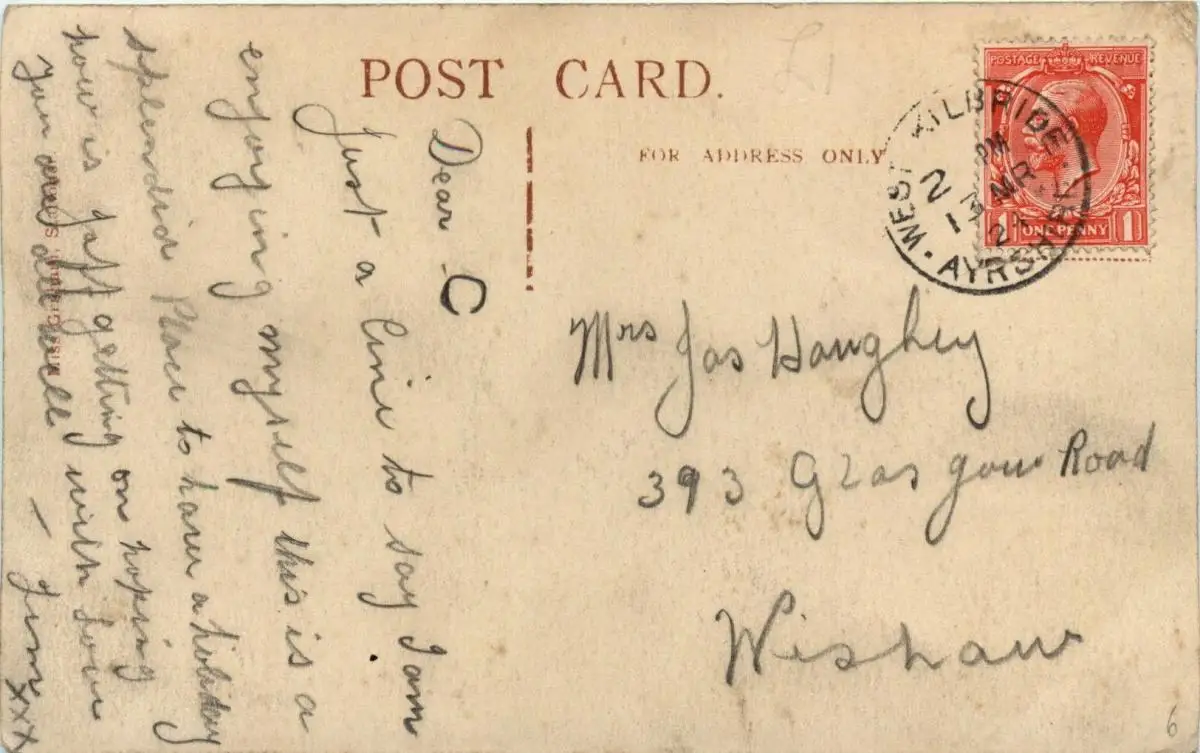 POST CARD.
FOR ADDRESS ONLY
£1
POSTAGE REVENUE
1 ONE PENNY 1
WEST KILBRIDE
2 PM
13 MR
24
AYRSHIRE
Dear C
Just a line to say I am
enjoying myself this is a
splendid Place to have a holiday
how is getting on hoping
you are all well with love
Jim xxx
Mrs Jas Haughey
393 Glasgow Road
Wishaw
6